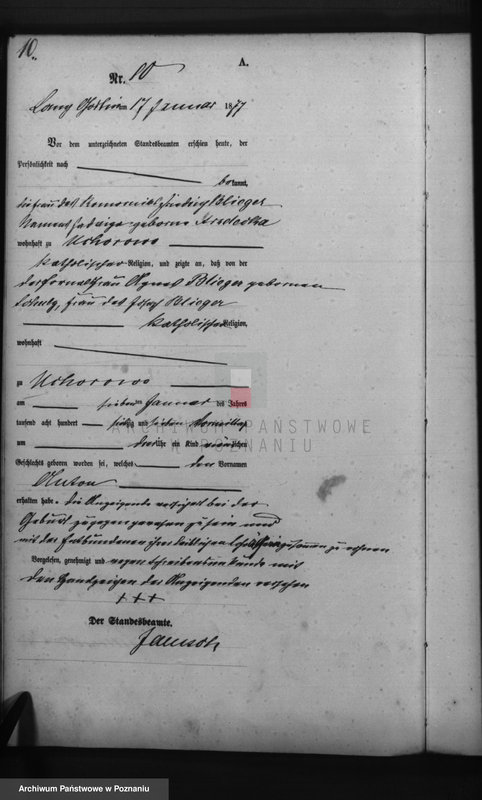 10.
A.
Nr. 10
Lang Goslin 17 Januar 1877
Vor dem unterzeichneten Standesbeamten erschien heute, der
Persönlichkeit nach
bekannt,
die Frau des Komornik Blieger
Namens Hedwig geborne
wohnhaft zu Uchorowo
katholischer Religion, und zeigte an, daß von der
der Fornalfrau Agnes Blieger gebornen
Frau des Josef Blieger
katholischer Religion,
wohnhaft
zu Uchorowo
am sieben Januar des Jahres
tausend acht hundert siebzig und sieben Vormittags
um drei Uhr ein Kind männlichen
Geschlechts geboren worden sei, welches den Vornamen
Anton
erhalten habe. Die Anzeigende versichert bei der
Geburt zugegen gewesen zu sein und
mit der Entbundenen
Vorgelesen, genehmigt und wegen Schreibensunkunde mit
den Handzeichen der Anzeigenden versehen
+++
Der Standesbeamte.
ARCHIWUM PAŃSTWOWE
W POZNANIU
Archiwum Państwowe w Poznaniu